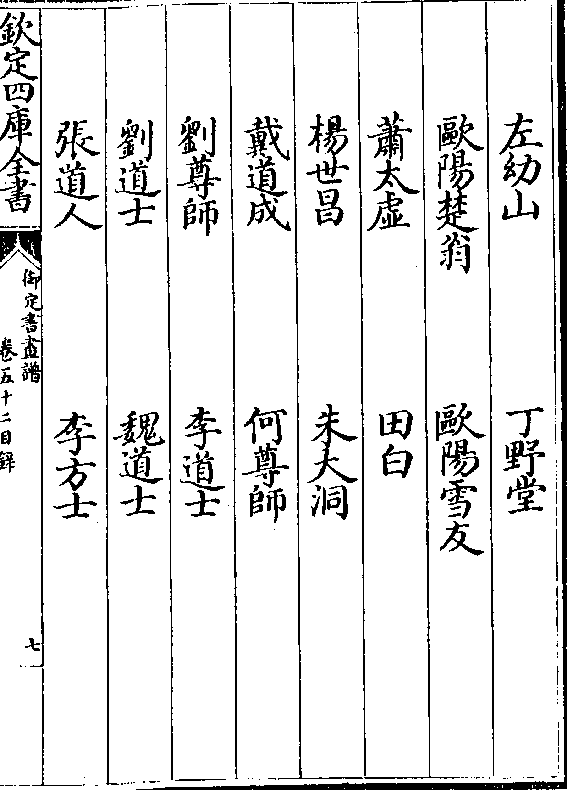 左幼山 丁野堂
歐陽楚翁 歐陽雪友
蕭太虛 田白
楊世昌 朱大洞
戴道成 何尊師
劉尊師 李道士
劉道士 魏道士
張道人 李方士
欽定四庫全書
御定書畫譜
卷五十二目錄
七